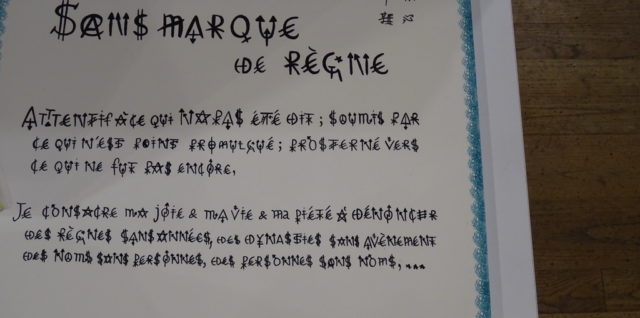 Sans marque
de règne
Attentif à ce qui n'a pas été dit ; soumis par
ce qui n'est point promulgué ; prosterné vers
ce qui ne fut pas encore,
Je consacre ma joie & ma vie & ma piété à dénoncer
des règnes sans années, des dynasties sans avènement
des noms sans personnes, des personnes sans noms, ...